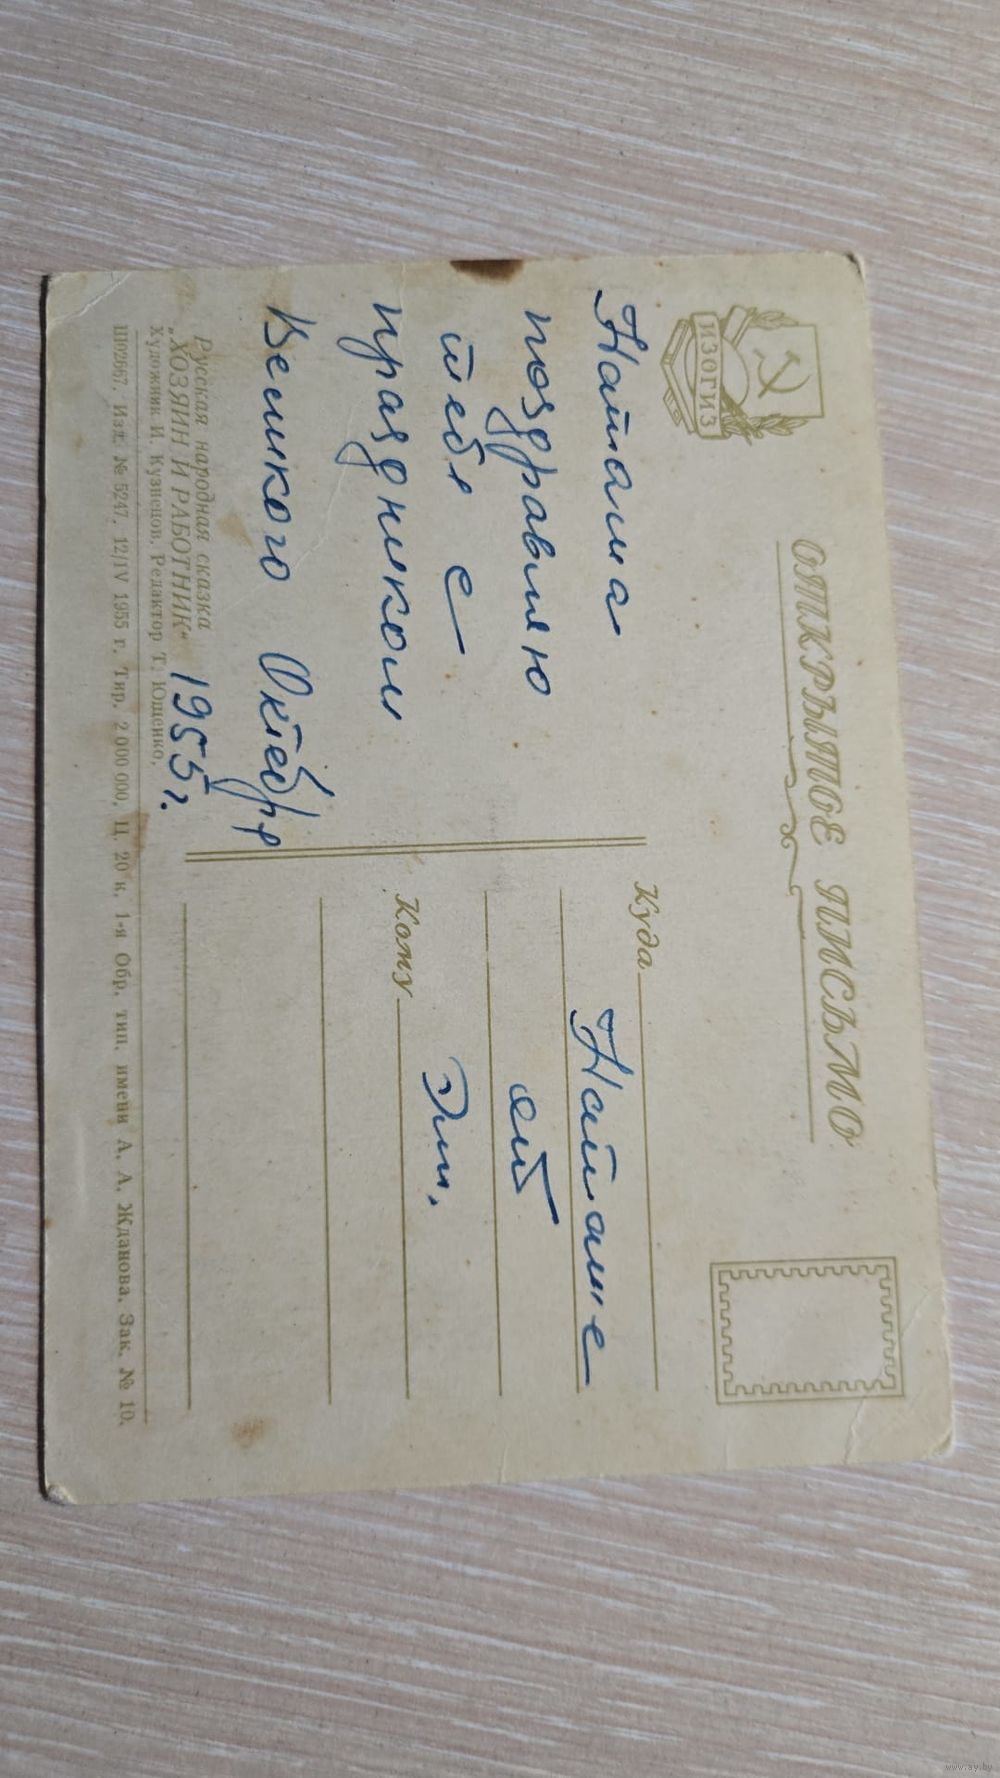 ИЗОГИЗ
ОТКРЫТОЕ ПИСЬМО
Наташа
поздравляю
тебя с
праздником
Великого Октебрр
1955 г.
Куда
Наташе
от
Кому
Эли.
Русская народная сказка
„ХОЗЯИН И РАБОТНИК"
Художник И. Кузнецов. Редактор Т. Ющенко.
Ш02967. Изд. № 5247. 12/IV 1955 г. Тир. 2 000 000. Ц. 20 к. 1-я Обр. тип. имени А. А. Жданова. Зак. № 10.
www.ay.by